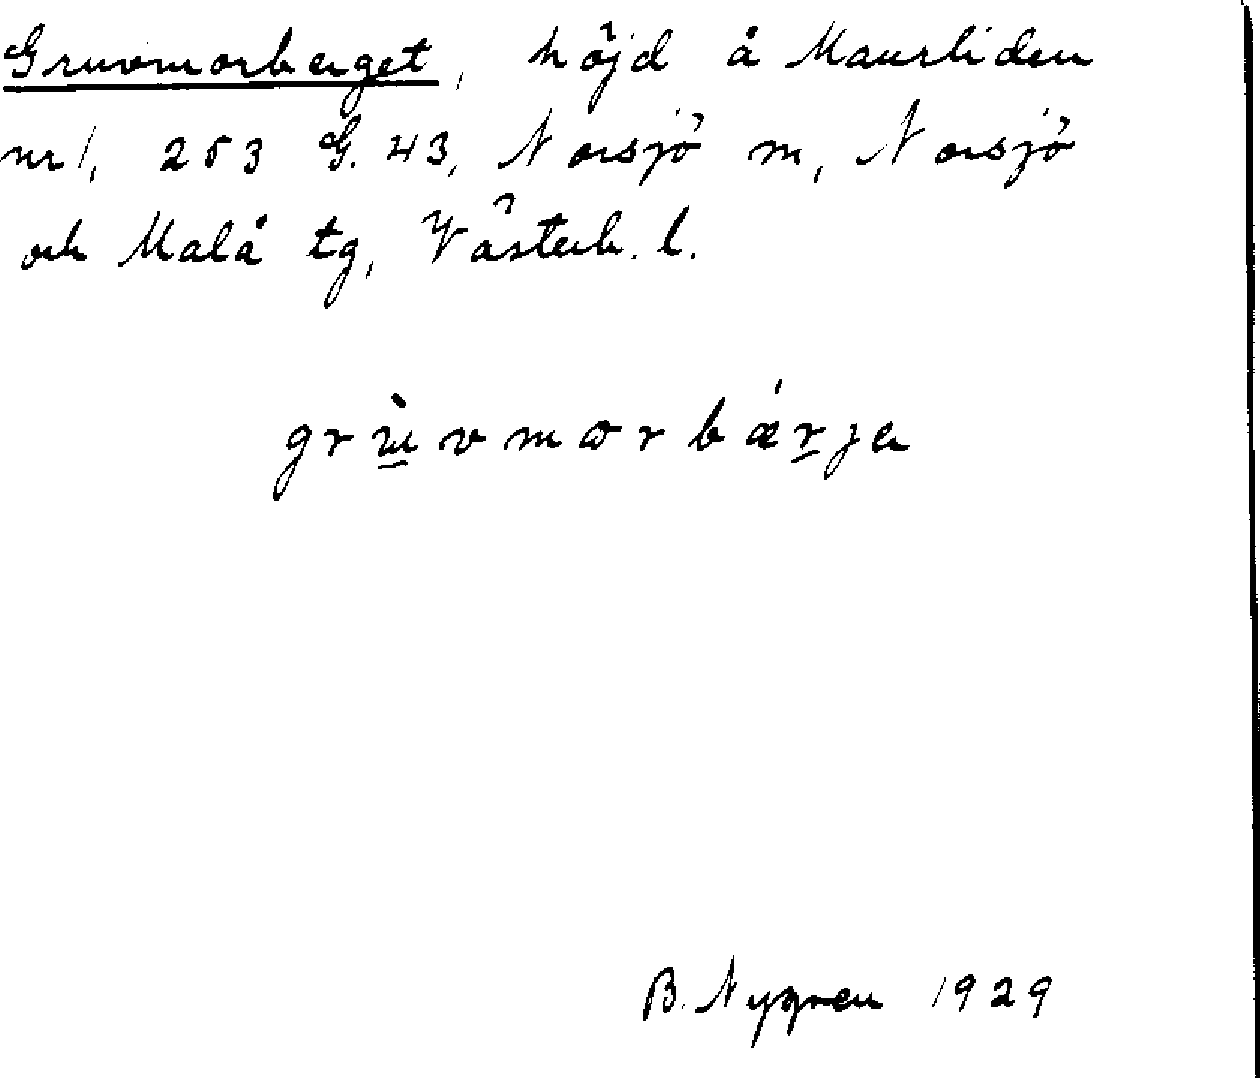 Gruvmorberget, höjd å Maurliden
nr 1, 253 G. 43, Norsjö m, Norsjö
och Malå tg, Västerb. l.
grùvmorbǽrjen
B. Nygren 1929